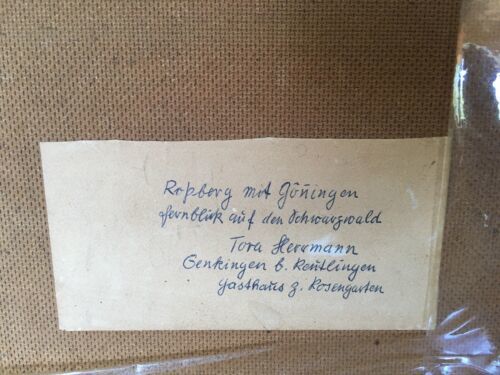 Roßberg mit Gönningen
Fernblick auf den Schwarzwald
Tora Herrmann
Genkingen b. Reutlingen
Gasthaus z. Rosengarten